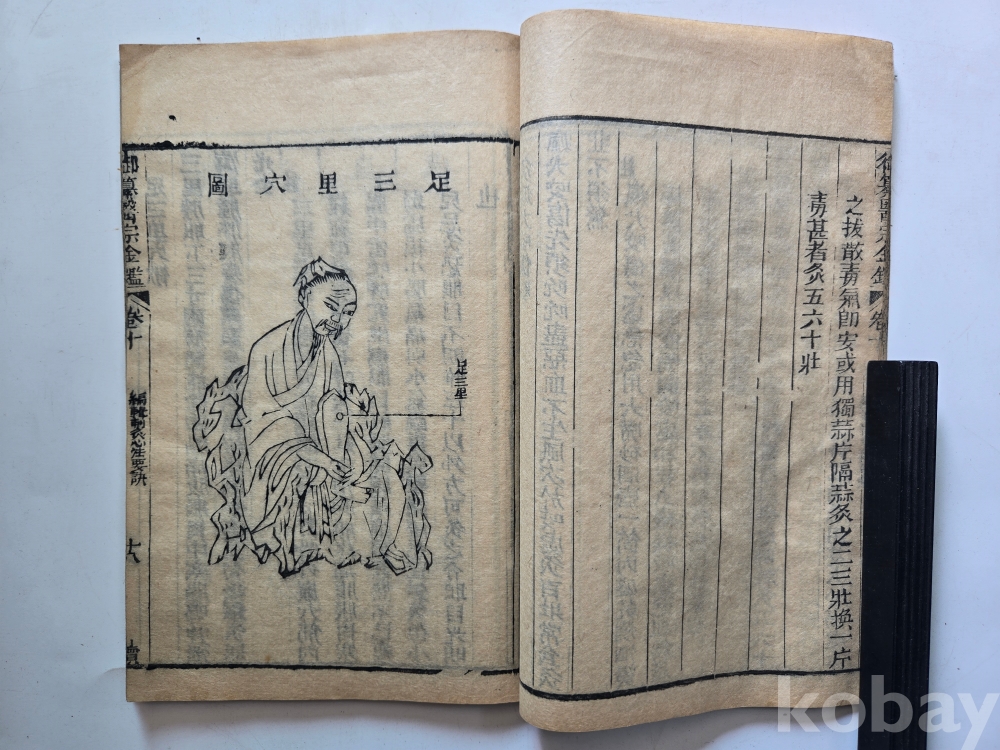 御纂醫宗金鑑 卷
之拔散毒氣即安或用獨蒜片隔蒜灸之二三壯換一片
毒甚者灸五六十壯
足三里穴圖
足三里
御纂醫宗金鑑 卷十
編輯刺灸心法要訣
kobay